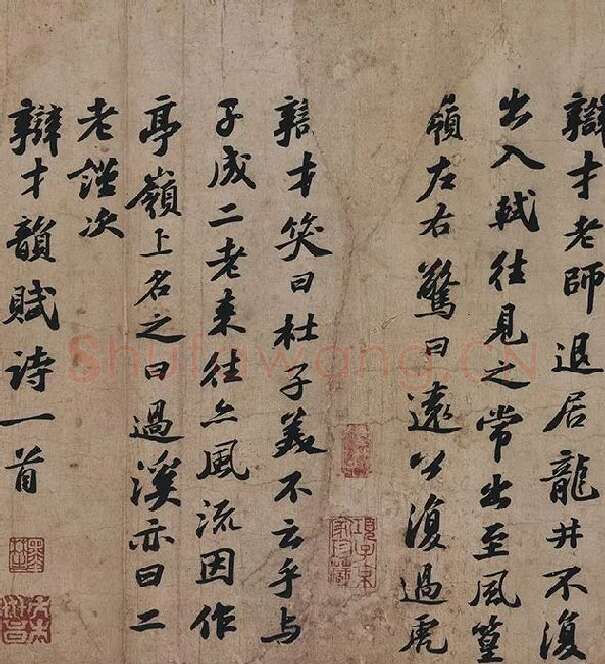 辯才老師退居龍井不復
出入軾往見之常出至風篁
嶺左右驚曰遠公復過虎
辯才笑曰杜子美不云乎与
子成二老來往亦風流因作
亭嶺上名之曰過溪亦曰二
老謹次
辯才韻賦詩一首
項子京家珍藏
Shufawang.CN